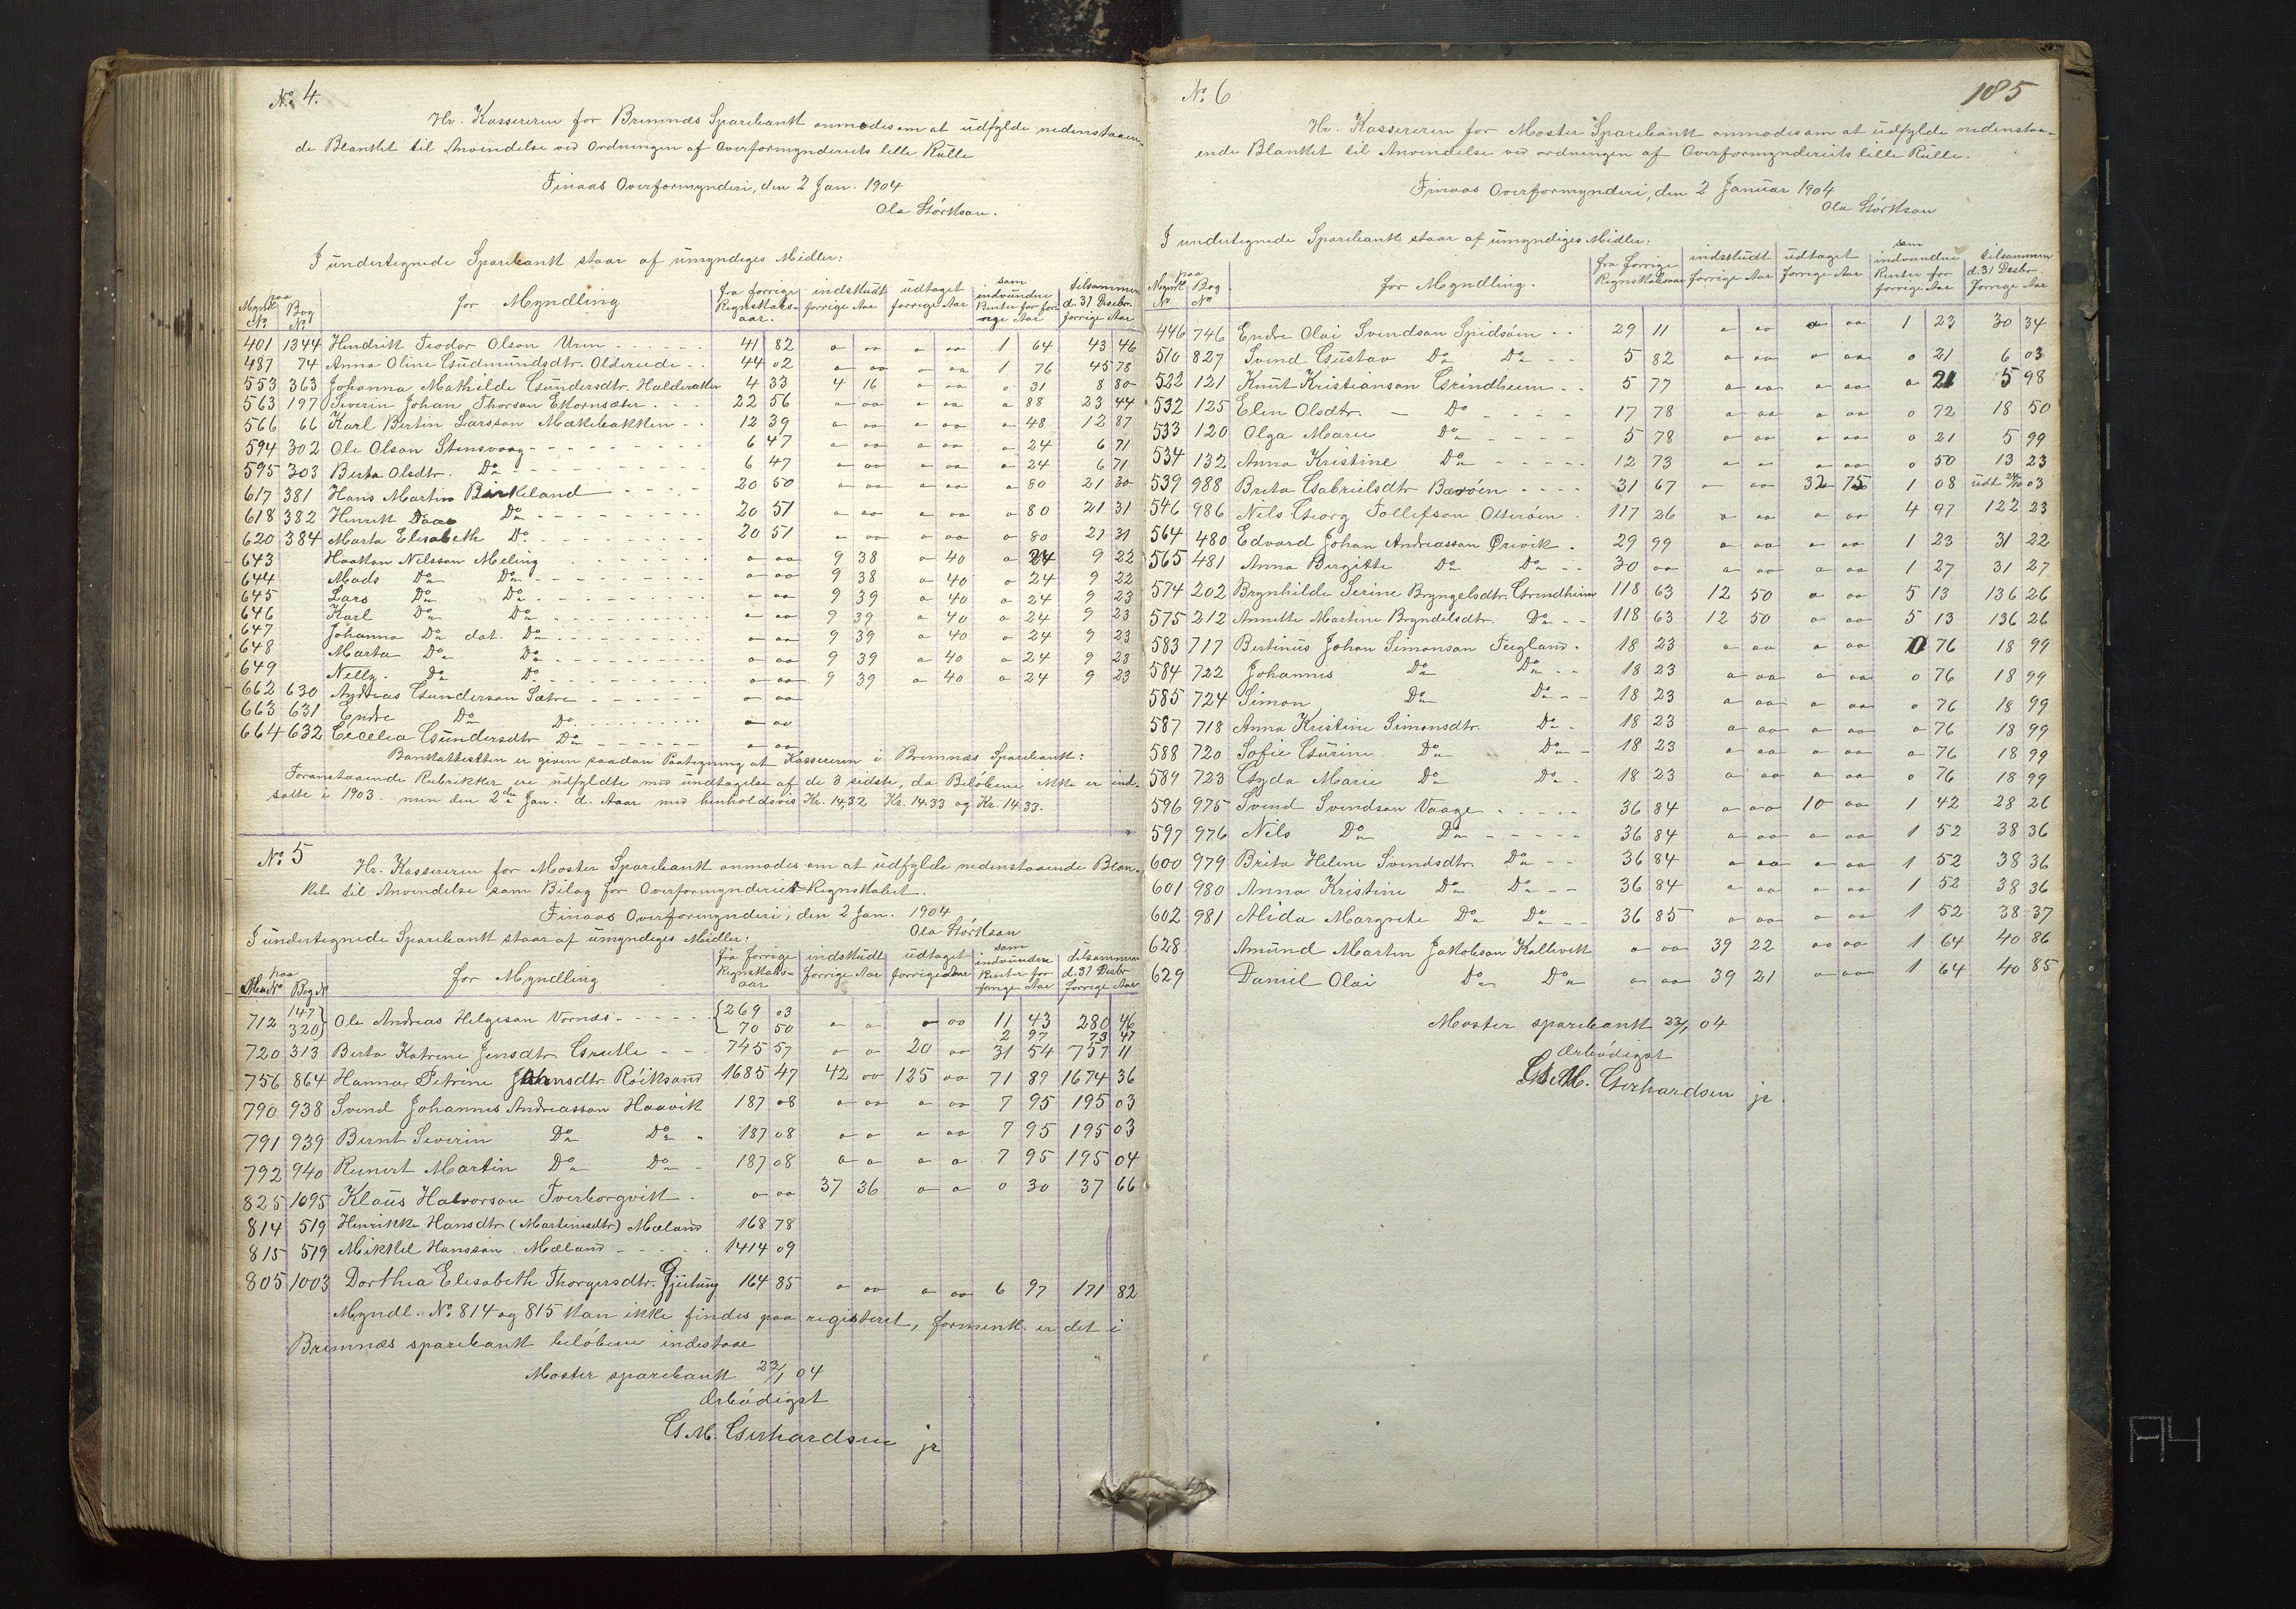 No. 4.
Hr. Kassereren for Bremnæs Sparebank anmodes om at udfylde nedenstaaen-
de Blanket til Anvendelse ved Ordningen af Overformynderiets lille Rulle
Finaas Overformynderi, den 2 Jan. 1904
Ola Størkson.
I undertegnede Sparebank staar af umyndiges Midler:
Myndl. No | paa Bog No. | for Myndling | fra forrige Regnskabs-aar. | indskudt forrige Aar | udtaget forrige Aar | som indvundne Renter for forrige Aar | tilsammen d. 31 Desebr. forrige Aar
401 1344 Hendrik Teodor Olson Urin 41 82 o oo o oo 1 64 43 46
487 74 Anna Oline Gudmundsdtr. Oldereide 44 02 o oo o oo 1 76 45 78
553 363 Johanna Mathilde Gundersdtr. Halderaker 4 33 4 16 o oo o 31 8 80
563 197 Severin Johan Thorson Ekornsæter 22 56 o oo o oo o 88 23 44
566 66 Karl Bertin Larsson Mækebakken 12 39 o oo o oo o 48 12 87
594 302 Ole Olson Stensvaag 6 47 o oo o oo o 24 6 71
595 303 Berta Olsdtr. Do 6 47 o oo o oo o 24 6 71
617 381 Hans Martin Birkeland 20 50 o oo o oo o 80 21 30
618 382 Henrik Daae Do 20 51 o oo o oo o 80 21 31
620 384 Marta Elisabeth Do 20 51 o oo o oo o 80 21 31
643 Haakon Nilsson Meling o oo 9 38 o 40 o 24 9 22
644 Mads Do Do o oo 9 38 o 40 o 24 9 22
645 Lars Do Do o oo 9 39 o 40 o 24 9 23
646 Karl Do Do o oo 9 39 o 40 o 24 9 23
647 Johanna Do dat. Do o oo 9 39 o 40 o 24 9 23
648 Marta Do Do o oo 9 39 o 40 o 24 9 23
649 Nelly. Do Do o oo 9 39 o 40 o 24 9 23
662 630 Andreas Gunderson Sætre o oo
663 631 Endre Do Do o oo
664 632 Cecelia Gundersdtr Do o oo
Bankattesten er given saadan Paategning af Kassereren i Bremnæs Sparebank:
Foranstaaende Rubrikker ere udfyldte med undtagelse af de 3 sidste, da Beløbene ikke er ind-
satte i 1903. men den 2den Jan. d. Aaar med henholdsvis Kr. 14,32 Kr. 14.33 og Kr. 14.33.
No. 5
Hr. Kassereren for Moster Sparebank anmodes om at udfylde nedenstaaende Blan-
ket til Anvendelse som Bilag for Overformynderiets Regnskabet.
Finaas Overformynderi, den 2 Jan. 1904
Ola Størkson
I undertegnede Sparebank staar af umyndiges Midler:
No | paa Bog No | for Myndling | fra forrige Regnskabs-aar | indskudt forrige Aar | udtaget forrige Aar | som indvundne Renter for forrige Aar | tilsammen d. 31 Desbr forrige Aar
712 147 Ole Andreas Helgeson Vornæs 269 03 o o o oo 11 43 280 46
320 70 50 2 97 73 47
720 313 Berta Katrine Jensdtr. Grutle 745 57 o o 20 oo 31 54 757 11
756 864 Hanna Petrine Johnsdtr. Røiksund 1685 47 42 oo 125 oo 71 89 1674 36
790 938 Svend Johannes Andreasson Haavik 187 08 o oo o oo 7 95 195 03
791 939 Bernt Severin Do Do 187 08 o o o oo 7 95 195 03
792 940 Reinert Martin Do Do 187 08 o o o o 7 95 195 04
825 1095 Klaus Halvorson Tverborgvik o oo 37 36 o o 0 30 37 66
814 519 Henrikke Hansdtr (Martinsdtr) Mæland 168 78
815 519 Mikkel Hansson Mæland 1414 09
805 1003 Dorthea Elisabeth Thorgersdtr. Gjeitung 164 85 o oo o oo 6 97 171 82
Myndl. No 814 og 815 kan ikke findes paa registeret, formentl. er det i
Bremnæs sparebank beløbene indestaar
Moster sparebank 23/1 04
Ærbødigst
G. M. Gerhardsen jr
No. 6
185
Hr. Kassereren for Moster Sparebank anmodes om at udfylde nedenstaa-
ende Blanket til Anvendelse ved ordningen af Overformynderiets lille Rulle.
Finaas Overformynderi, den 2 Januar 1904
Ola Størkson
I undertegnede Sparebank staar af umyndiges Midler:
Myndl. No | paa Bog No | for Myndling. | fra forrige Regnskabsaar | indskudt forrige Aar | udtaget forrige Aar | som indvundne Renter for forrige Aar | tilsammen d. 31 Desbr. forrige Aar
446 746 Endre Olai Svendson Spidsøen 29 11 o oo o oo 1 23 30 34
510 827 Svend Gustav Do Do 5 82 o oo o oo o 21 6 03
522 121 Knut Kristianson Grindheim 5 77 o oo o oo o 21 5 98
532 125 Elen Olsdtr. Do 17 78 o oo o oo o 72 18 50
533 120 Olga Marie Do 5 78 o oo o oo o 21 5 99
534 132 Anna Kristine Do 12 73 o o o oo o 50 13 23
539 988 Brita Gabrielsdtr Bærøen 31 67 o oo 32 75 1 08 udt 24/10 03
546 986 Nils Georg Tollefson Otterøen 117 26 o oo o oo 4 97 122 23
564 480 Edvard Johan Andreasson Ørevik 29 99 o oo o oo 1 23 31 22
565 481 Anna Birgitte Do Do 30 oo o oo o oo 1 27 31 27
574 202 Brynhilde Serine Bryngelsdtr. Grindheim 118 63 12 50 o oo 5 13 136 26
575 212 Annette Martine Bryndelsdtr. Do 118 63 12 50 o oo 5 13 136 26
583 717 Bertinus Johan Simonson Fugland 18 23 o oo o oo 0 76 18 99
584 722 Johannes Do Do 18 23 o oo o oo o 76 18 99
585 724 Simon Do Do 18 23 o oo o oo o 76 18 99
587 718 Anna Kristine Simonsdtr. Do 18 23 o oo o o o 76 18 99
588 720 Sofie Gurine Do Do 18 23 o oo o oo o 76 18 99
589 723 Gyda Marie Do Do 18 23 o oo o oo o 76 18 99
596 975 Svend Svendson Vaage 36 84 o oo 10 oo 1 42 28 26
597 976 Nils Do Do 36 84 o oo o oo 1 52 38 36
600 979 Brita Helene Svendsdtr. Do 36 84 o oo o oo 1 52 38 36
601 980 Anna Kristine Do Do 36 84 o oo o oo 1 52 38 36
602 981 Alida Margrete Do Do 36 85 o oo o oo 1 52 38 37
628 Amund Martin Jakobson Kallevik o oo 39 22 oo oo 1 64 40 86
629 Daniel Olai Do Do o oo 39 21 o oo 1 64 40 85
Moster sparebank 23/1 04
Ærbødigst
G. M. Gerhardsen jr.
A4